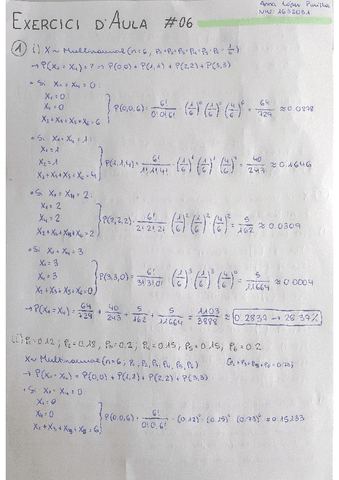 EXERCICI D'AULA #06
NIU: 1632031
① i) X ~ Multinomial (n=6, P₁=P₂=P₃=P₄=P₅=P₆=1/6)
→ P(X₂=X₄)=? → P(0,0)+P(1,1)+P(2,2)+P(3,3)
• Si X₂=X₄=0:
X₂=0
X₄=0
X₁+X₃+X₅+X₆=6
P(0,0,6)=6!/0!0!6! · (1/6)⁰ (1/6)⁰ (4/6)⁶ = 64/729 ≈ 0.0878
• Si X₂=X₄=1:
X₂=1
X₄=1
X₁+X₃+X₅+X₆=4
P(1,1,4)=6!/1!1!4! · (1/6)¹ (1/6)¹ (4/6)⁴ = 40/243 ≈ 0.1646
• Si X₂=X₄=2:
X₂=2
X₄=2
X₁+X₃+X₅+X₆=2
P(2,2,2)=6!/2!2!2! (1/6)² (1/6)² (4/6)² = 5/162 ≈ 0.0309
• Si X₂=X₄=3
X₂=3
X₄=3
X₁+X₃+X₅+X₆=0
P(3,3,0)=6!/3!3!0! (1/6)³ (1/6)³ (4/6)⁰ = 5/11664 ≈ 0.0004
→ P(X₂=X₄)=64/729 + 40/243 + 5/162 + 5/11664 = 1103/3888 ≈ 0.2837 → 28.37%
ii) P₁=0.12; P₂=0.18, P₃=0.2; P₄=0.15, P₅=0.15, P₆=0.2
X ~ Multinomial (n=6, P₁, P₂, P₃, P₄, P₅, P₆)
→ P(X₁=X₄)=P(0,0)+P(1,1)+P(2,2)+P(3,3)
• Si X₁=X₄=0:
X₁=0
X₄=0
P(0,0,6)=6!/0!0!6! · (0.12)⁰ · (0.15)⁰ · (0.73)⁶ ≈ 0.15133